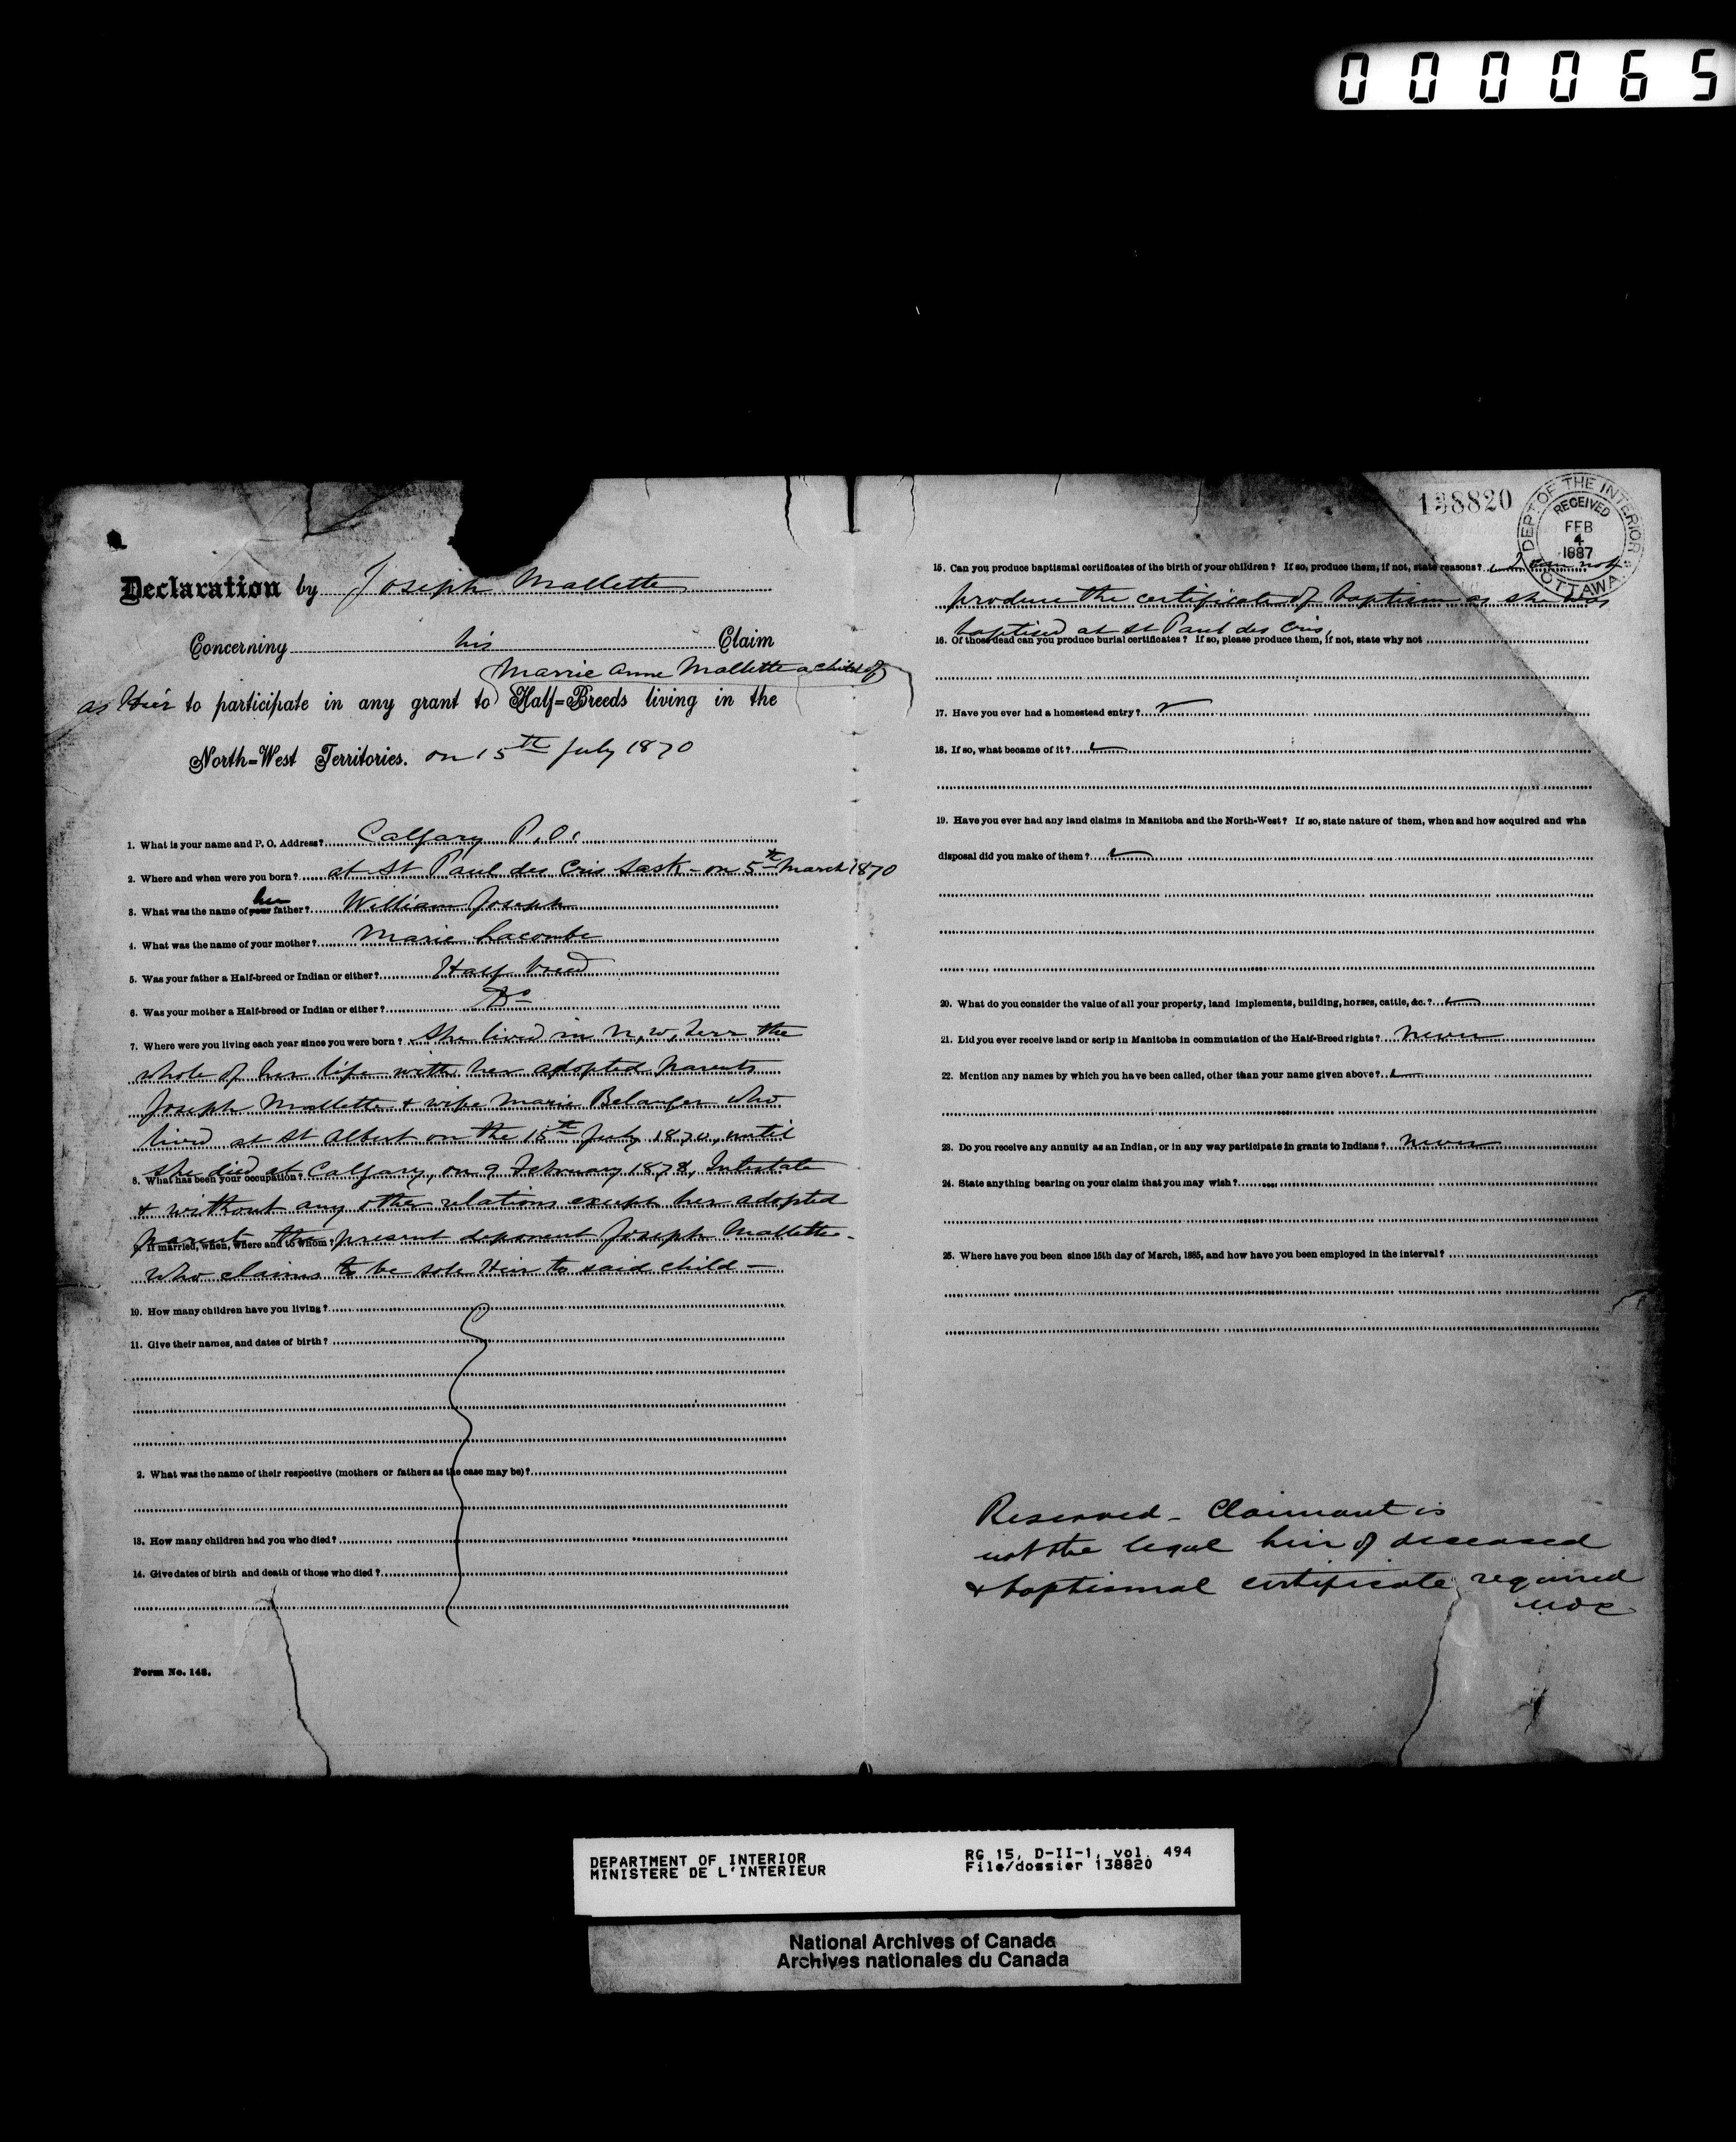 000065
138820
DEPT OF THE INTERIOR
RECEIVED
FEB
4
1887
OTTAWA
Declaration by Joseph Mallette
Concerning his Claim
Marrie Anne Mallette a child of
as Heir to participate in any grant to Half=Breeds living in the
North=West Territories. on 15th July 1870
1. What is your name and P. O. Address? Calgary P.O.
2. Where and when were you born? at St Paul des Cris Sask - on 5th March 1870
her
3. What was the name of your father? William Joseph
4. What was the name of your mother? Marie Lacombe
5. Was your father a Half-breed or Indian or either? Half breed
6. Was your mother a Half-breed or Indian or either? Do
7. Where were you living each year since you were born? She lived in N, W, Terr the
whole of her life with her adopted parents
Joseph Mallette & wife Marie Belanger who
lived at St Albert on the 15th July 1870, until
she died at Calgary, on 9 February 1878, Intestate
8. What has been your occupation?
& without any other relations except her adopted
parent the present deponent Joseph Mallette -
9. If married, when, where and to whom?
who claims to be sole Heir to said child -
10. How many children have you living?
11. Give their names, and dates of birth?
2. What was the name of their respective (mothers or fathers as the case may be)?
13. How many children had you who died?
14. Give dates of birth and death of those who died?
Form No. 148.
15. Can you produce baptismal certificates of the birth of your children? If so, produce them, if not, state reasons? I can not
produce the certificate of baptism as she was
baptised at St Paul des Cris,
16. Of those dead can you produce burial certificates? If so, please produce them, if not, state why not
17. Have you ever had a homestead entry?
18. If so, what became of it?
19. Have you ever had any land claims in Manitoba and the North-West? If so, state nature of them, when and how acquired and wha
disposal did you make of them?
20. What do you consider the value of all your property, land implements, building, horses, cattle, &c.?
21. Did you ever receive land or scrip in Manitoba in commutation of the Half-Breed rights? Never
22. Mention any names by which you have been called, other than your name given above?
23. Do you receive any annuity as an Indian, or in any way participate in grants to Indians? Never
24. State anything bearing on your claim that you may wish?
25. Where have you been since 15th day of March, 1885, and how have you been employed in the interval?
Reserved - Claimant is
not the legal heir of deceased
& baptismal certificate required
DEPARTMENT OF INTERIOR
MINISTERE DE L'INTERIEUR
RG 15, D-II-1, vol. 494
File/dossier 138820
National Archives of Canada
Archives nationales du Canada